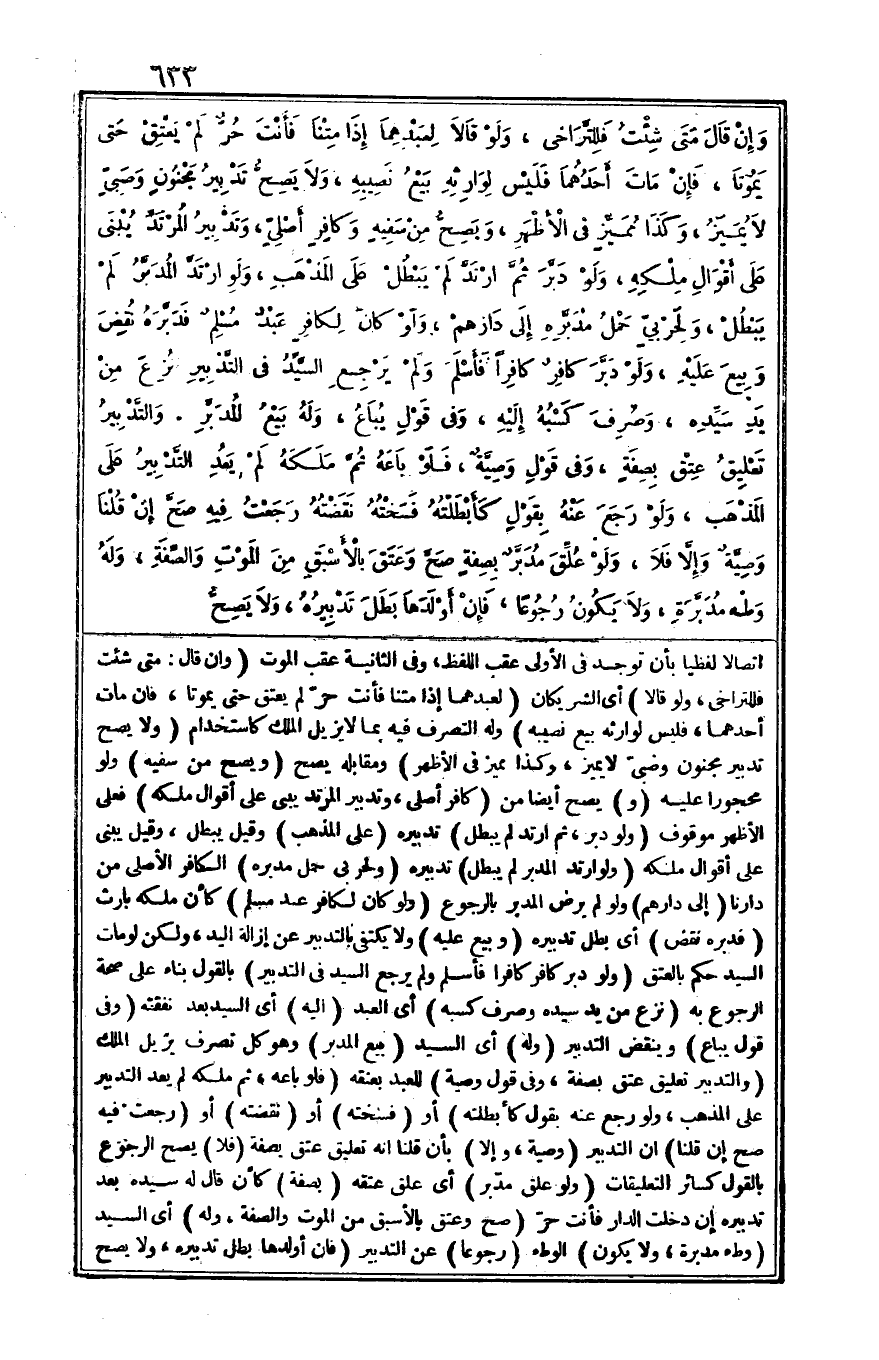 ٦٣٣
وَإِنْ قَالَ مَتَى شِئْتَ فَلِلتَّرَاخِى ، وَلَوْ قَالاَ لِعَبْدِهِمَا إِذَا مِتْنَا فَأَنْتَ حُرٌّ لَمْ يَعْتِقْ حَتَّى
يَمُوتَا ، فَإِنْ مَاتَ أَحَدُهُمَا فَلَيْسَ لِوَارِثِهِ بَيْعُ نَصِيبِهِ ، وَلاَ يَصِحُّ تَدْبِيرُ مَجْنُونٍ وَصَبِيٍّ
لاَ يُمَيِّزُ ، وَكَذَا مُمَيِّزٌ فِى الْأَظْهَرِ ، وَيَصِحُّ مِنْ سَفِيهٍ وَكَافِرٍ أَصْلِيٍّ ، وَتَدْبِيرُ الْمُرْتَدِّ يُبْنَى
عَلَى أَقْوَالِ مِلْكِهِ ، وَلَوْ دَبَّرَ ثُمَّ ارْتَدَّ لَمْ يَبْطُلْ عَلَى الْمَذْهَبِ ، وَلَوِ ارْتَدَّ الْمُدَبَّرُ لَمْ
يَبْطُلْ ، وَلِحَرْبِيٍّ حَمْلُ مُدَبَّرِهِ إِلَى دَارِهِمْ ، وَلَوْ كَانَ لِكَافِرٍ عَبْدٌ مُسْلِمٌ فَدَبَّرَهُ نُقِضَ
وَبِيعَ عَلَيْهِ ، وَلَوْ دَبَّرَ كَافِرٌ كَافِراً فَأَسْلَمَ وَلَمْ يَرْجِعِ السَّيِّدُ فِى التَّدْبِيرِ نُزِعَ مِنْ
يَدِ سَيِّدِهِ ، وَصُرِفَ كَسْبُهُ إِلَيْهِ ، وَفِى قَوْلٍ يُبَاعُ ، وَلَهُ بَيْعُ الْمُدَبَّرِ . وَالتَّدْبِيرُ
تَعْلِيقُ عِتْقٍ بِصِفَةٍ ، وَفِى قَوْلٍ وَصِيَّةٌ ، فَلَوْ بَاعَهُ ثُمَّ مَلَكَهُ لَمْ يَعُدِ التَّدْبِيرُ عَلَى
الْمَذْهَبِ ، وَلَوْ رَجَعَ عَنْهُ بِقَوْلٍ كَأَبْطَلْتُهُ فَسَخْتُهُ نَقَضْتُهُ رَجَعْتُ فِيهِ صَحَّ إِنْ قُلْنَا
وَصِيَّةٌ وَإِلَّا فَلَا ، وَلَوْ عُلِّقَ مُدَبَّرٌ بِصِفَةٍ صَحَّ وَعَتَقَ بِالْأَسْبَقِ مِنَ الْمَوْتِ وَالصِّفَةِ ، وَلَهُ
وَطْءُ مُدَبَّرَةٍ ، وَلاَ يَكُونُ رُجُوعًا ، فَإِنْ أَوْلَدَهَا بَطَلَ تَدْبِيرُهُ ، وَلاَ يَصِحُّ
اتصالا لفظيا بأن توجد فى الأولى عقب اللفظ، وفى الثانية عقب الموت ( وان قال : متى شئت
فللتراخى ، ولو قالا ) أى الشريكان ( لعبدهما إذا متنا فأنت حرّ لم يعتق حتى يموتا ، فان مات
أحدهما ، فليس لوارثه بيع نصيبه ) وله التصرف فيه بما لايزيل الملك كاستخدام ( ولا يصح
تدبير مجنون وصبىّ لايميز ، وكذا مميز فى الأظهر ) ومقابله يصح ( ويصح من سفيه ) ولو
محجورا عليه ( و ) يصح أيضا من ( كافر أصلى ، وتدبير المرتد يبنى على أقوال ملكه ) فعلى
الأظهر موقوف ( ولو دبر ، ثم ارتد لم يبطل ) تدبيره ( على المذهب ) وقيل يبطل ، وقيل يبنى
على أقوال ملكه ( ولو ارتد المدبر لم يبطل ) تدبيره ( ولحربى حمل مدبره ) الكافر الأصلى من
دارنا ( إلى دارهم ) ولو لم يرض المدبر بالرجوع ( ولو كان لكافر عبد مسلم ) كأن ملكه بارث
( فدبره نقض ) أى بطل تدبيره ( وبيع عليه ) ولا يكتفى بالتدبير عن إزالة اليد ، ولكن لومات
السيد حكم بالعتق ( ولو دبر كافر كافرا فأسلم ولم يرجع السيد فى التدبير ) بالقول بناء على صحة
الرجوع به ( نزع من يد سيده وصرف كسبه ) أى العبد ( اليه ) أى السيد بعد نفقته ( وفى
قول يباع ) وينقض التدبير ( وله ) أى السيد ( بيع المدبر ) وهو كل تصرف يزيل الملك
( والتدبير تعليق عتق بصفة ، وفى قول وصية ) للعبد بعتقه ( فلو باعه ، ثم ملكه لم يعد التدبير
على المذهب ، ولو رجع عنه بقول كأبطلته ) أو ( فسخته ) أو ( نقضته ) أو ( رجعت فيه
صح إن قلنا ) ان التدبير ( وصية ، وإلا ) بأن قلنا انه تعليق عتق بصفة ( فلا ) يصح الرجوع
بالقول كسائر التعليقات ( ولو علق مدبّر ) أى علق عتقه ( بصفة ) كأن قال له سيده بعد
تدبيره إن دخلت الدار فأنت حرّ ( صح وعتق بالأسبق من الموت والصفة ، وله ) أى السيد
( وطء مدبرة ، ولا يكون ) الوطء ( رجوعا ) عن التدبير ( فان أولدها بطل تدبيره ، ولا يصح